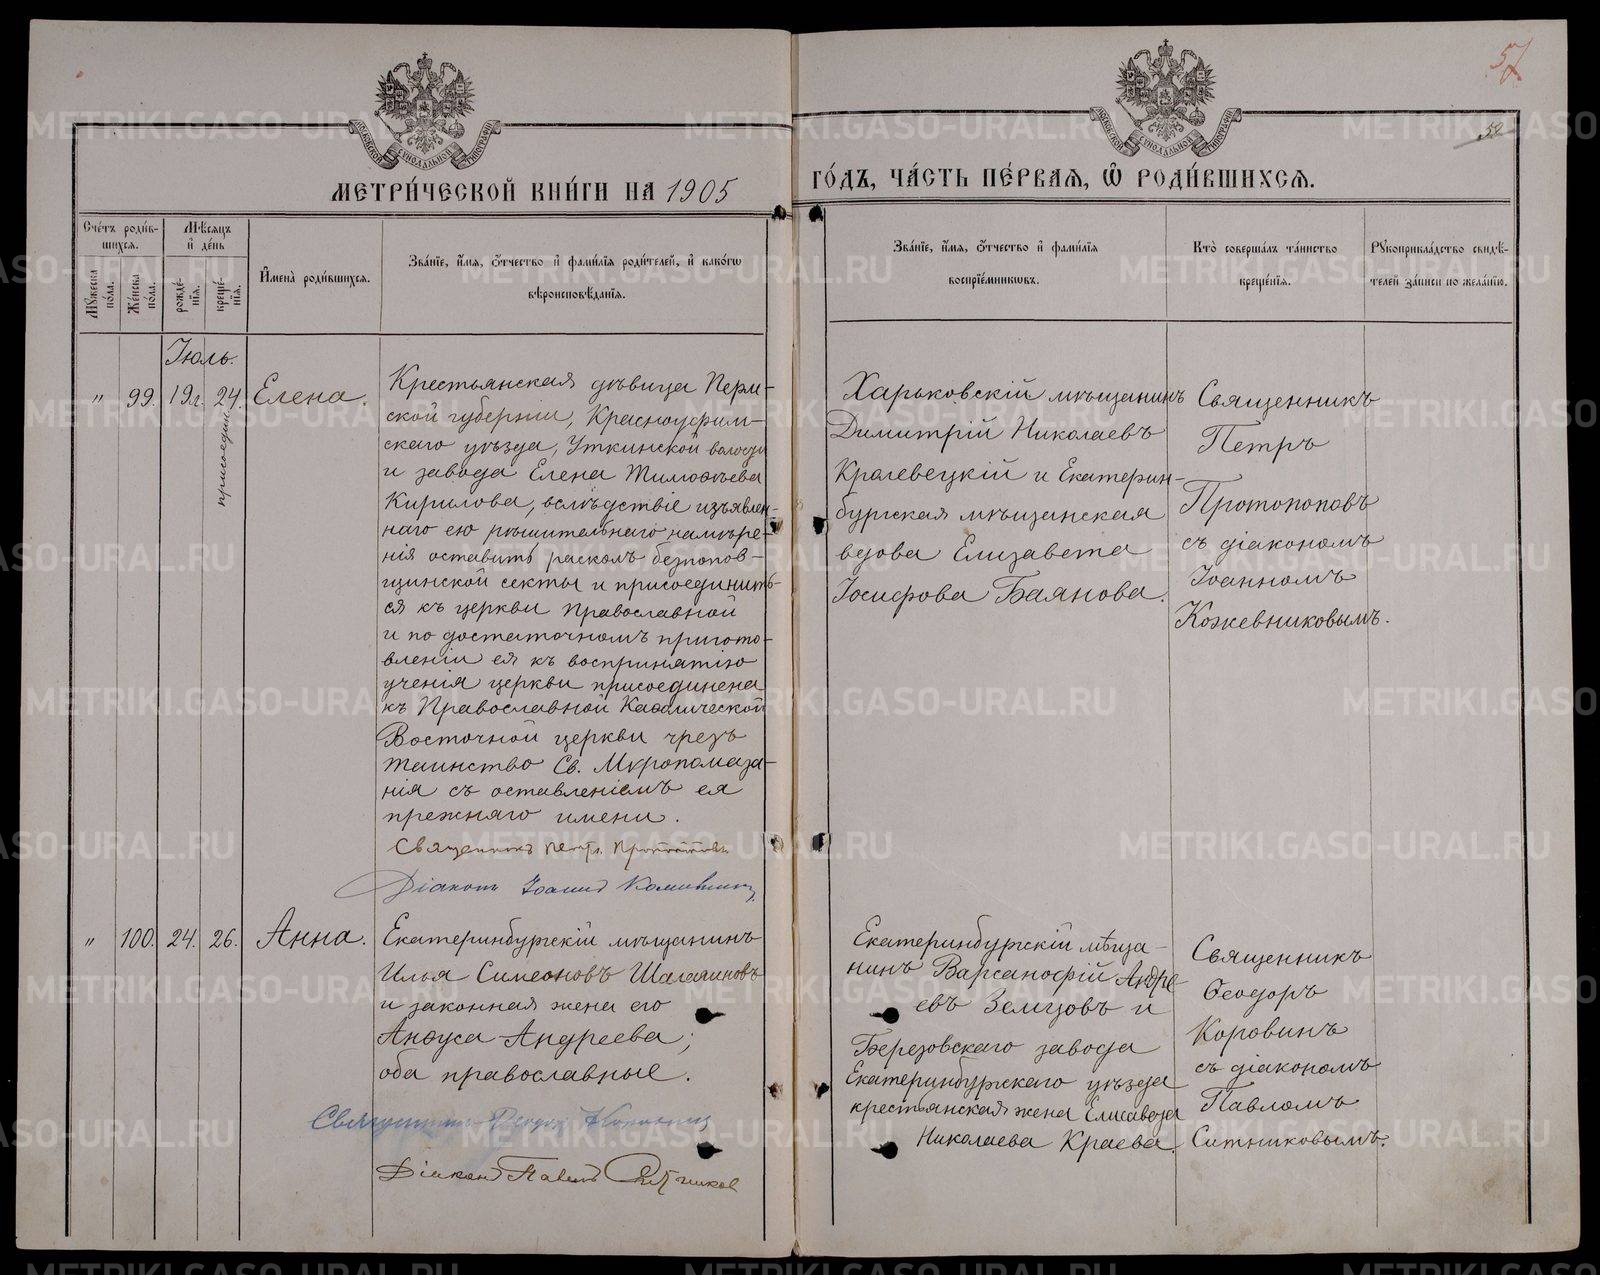 57
52
МОСКОВСКОЙ СѴНОДАЛЬНОЙ ТИПОГРАФІИ
МОСКОВСКОЙ СѴНОДАЛЬНОЙ ТИПОГРАФІИ
МЕТРИ́ЧЕСКОЙ КНИ́ГИ НА 1905
ГО́ДЪ, ЧА́СТЬ ПЕ́РВАѦ, Ѡ҆ РОДИ́ВШИХСѦ.
Сче́тъ роди́в-
шихся.
Мꙋжеска по́ла.
Же́нска по́ла.
Мѣ́сяцъ
и҆ де́нь
рожде́-нїя.
креще́-нїя.
И҆мена̀ роди́вшихся.
Зва́нїе, и҆́мя, ѻ҆́тчество и҆ фами́лїя роди́телей, и҆ како́гѡ
вѣроисповѣ́данїя.
Зва́нїе, и҆́мя, ѻ҆́тчество и҆ фами́лїя
воспрїе́мникѡвъ.
Кто̀ соверша́лъ та́инство
креще́нїя.
Рꙋкоприкла́дство свидѣ́-
телей за́писи по жела́нїю.
Іюль.
" 99. 19л. 24. Елена.
присоедин.
Крестьянская дѣвица Перм-
ской губерніи, Красноуфим-
скаго уѣзда, Уткинской волости
и завода Елена Тимоѳѣева
Кирилова, вслѣдствіе изъявлен-
наго ею рѣшительнаго намѣре-
нія оставить расколъ безпопов-
щинской секты и присоединить-
ся къ церкви Православной
и по достаточномъ пригото-
вленіи ея къ воспринятію
ученія церкви присоединена
къ Православной Каѳолической
Восточной церкви чрезъ
таинство Св. Мѵропомаза-
нія съ оставленіемъ ея
прежняго имени.
Священникъ Петръ Протопоповъ
Діаконъ Іоаннъ Кожевниковъ
Харьковскій мѣщанинъ
Димитрій Николаевъ
Кролевецкій и Екатерин-
бургская мѣщанская
вдова Елизавета
Іосифова Баянова.
Священникъ
Петръ
Протопоповъ
съ діакономъ
Іоанномъ
Кожевниковымъ.
" 100. 24. 26. Анна.
Екатеринбургскій мѣщанинъ
Илья Симеоновъ Шалаиновъ
и законная жена его
Анѳуса Андреева;
оба православные.
Священникъ Ѳеодоръ Коровинъ
Діаконъ Павелъ Ситников
Екатеринбургскій мѣща-
нинъ Варсанофій Андре-
евъ Земцовъ и
Березовскаго завода
Екатеринбургскаго уѣзда
крестьянская жена Елисавета
Николаева Краева.
Священникъ
Ѳеодоръ
Коровинъ
съ діакономъ
Павломъ
Ситниковымъ.
METRIKI.GASO-URAL.RU